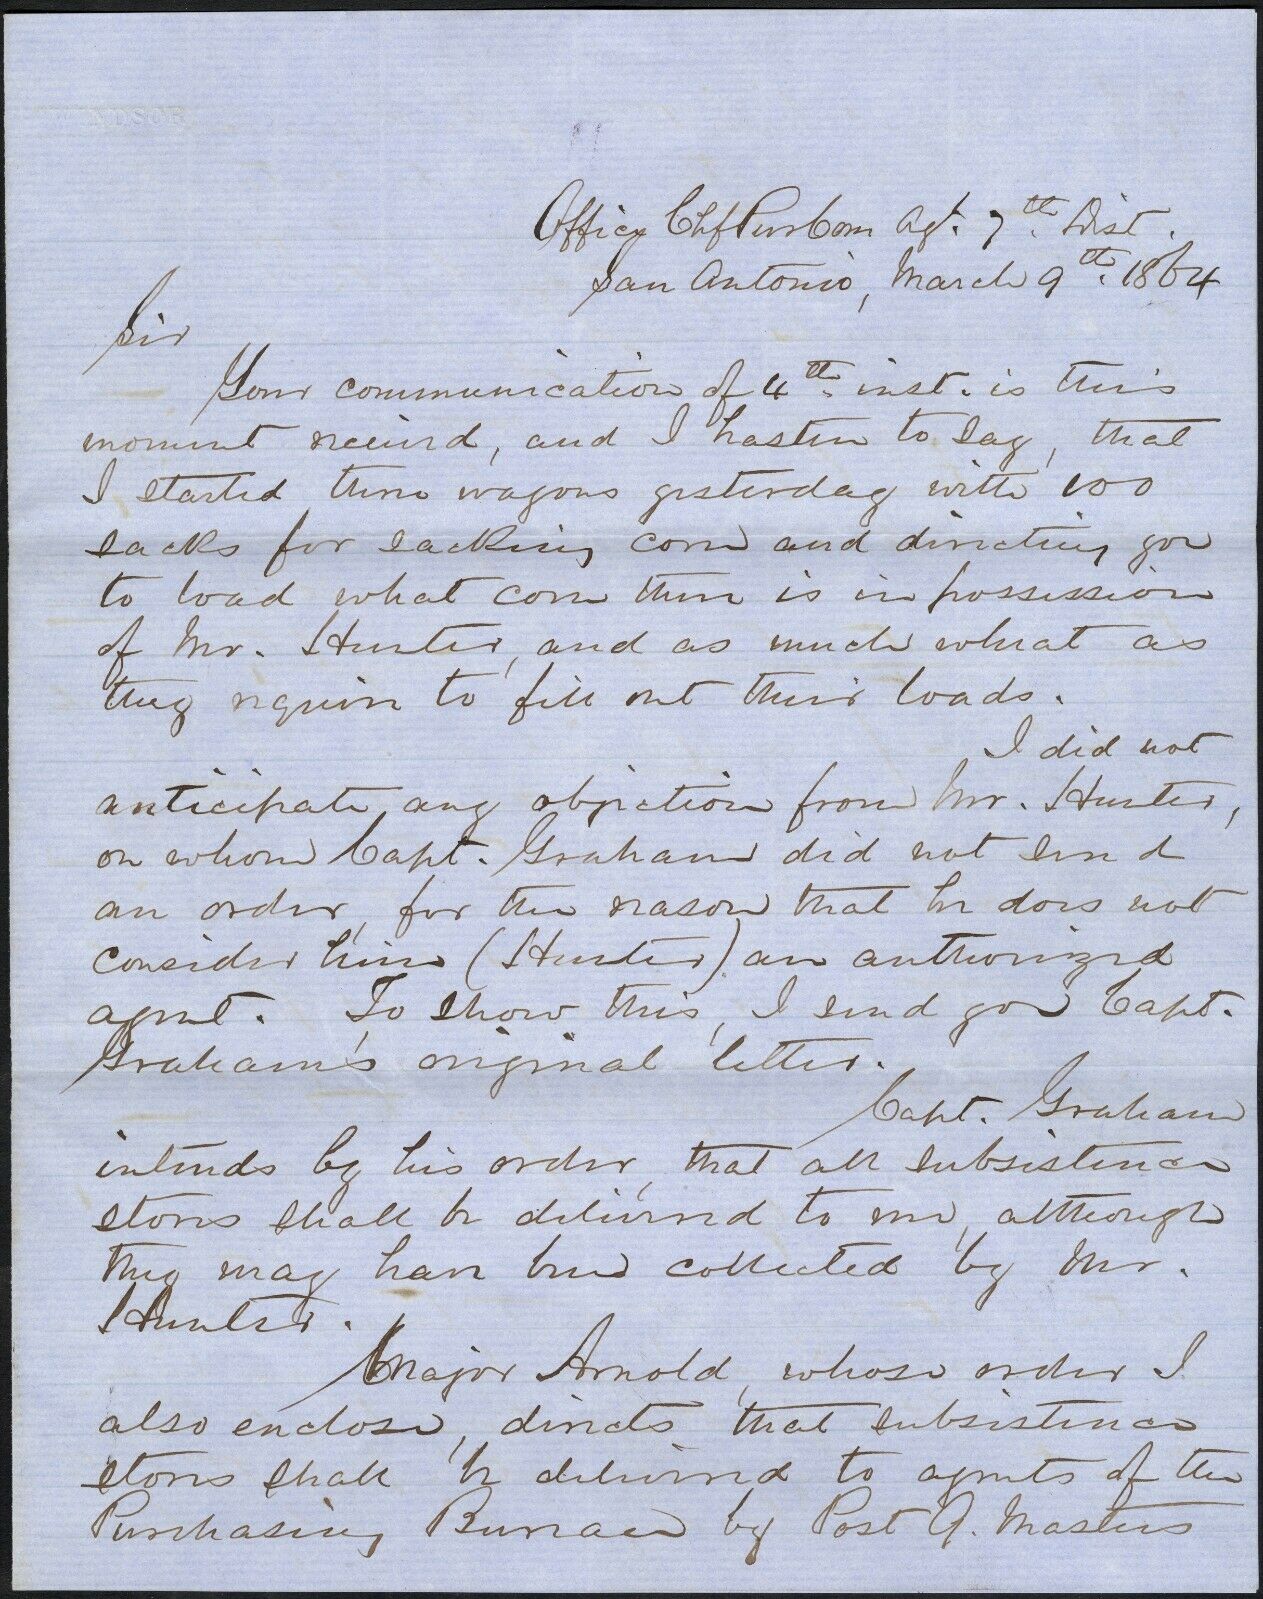 Office Chf Pur Com Agt. 7th Dist.
San Antonio, March 9th. 1864
Sir
Your communication of 4th inst. is this
moment received, and I hasten to say, that
I started three wagons yesterday with 100
sacks for sacking corn and directing you
to load what corn there is in possession
of Mr. Hunter, and as much wheat as
they require to fill out their loads.
I did not
anticipate any objection from Mr. Hunter,
on whom Capt. Graham did not send
an order, for the reason that he does not
consider him (Hunter) an authorized
agent. To show this, I send you Capt.
Graham's original letter.
Capt. Graham
intends by his order, that all subsistence
stores shall be delivered to me, although
they may have been collected by Mr.
Hunter.
Major Arnold, whose order I
also enclose, directs that subsistence
stores shall be delivered to agents of the
Purchasing Bureau by Post Q. Masters